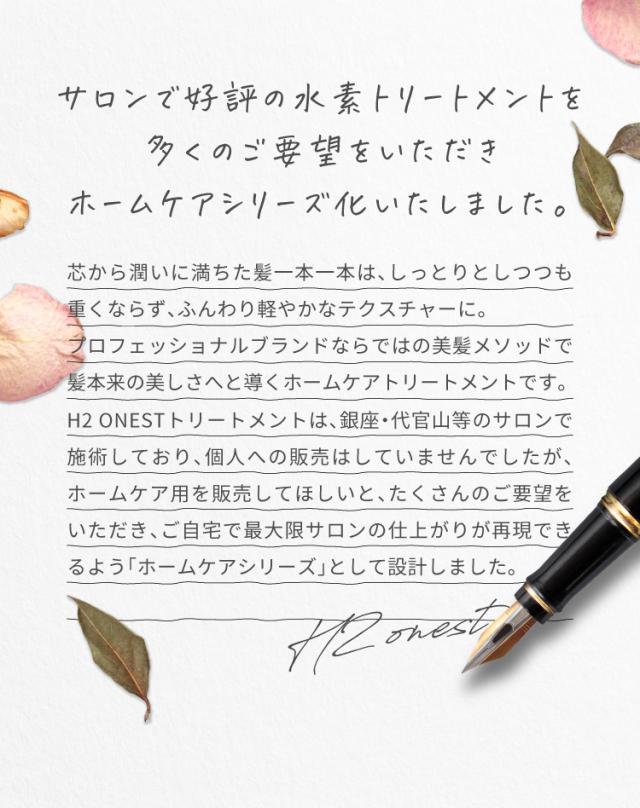 サロンで好評の水素トリートメントを
多くのご要望をいただき
ホームケアシリーズ化いたしました。
芯から潤いに満ちた髪一本一本は、しっとりとしつつも
重くならず、ふんわり軽やかなテクスチャーに。
プロフェッショナルブランドならではの美髪メソッドで
髪本来の美しさへと導くホームケアトリートメントです。
H2 ONESTトリートメントは、銀座・代官山等のサロンで
施術しており、個人への販売はしていませんでしたが、
ホームケア用を販売してほしいと、たくさんのご要望を
いただき、ご自宅で最大限サロンの仕上がりが再現でき
るよう「ホームケアシリーズ」として設計しました。
H2 onest